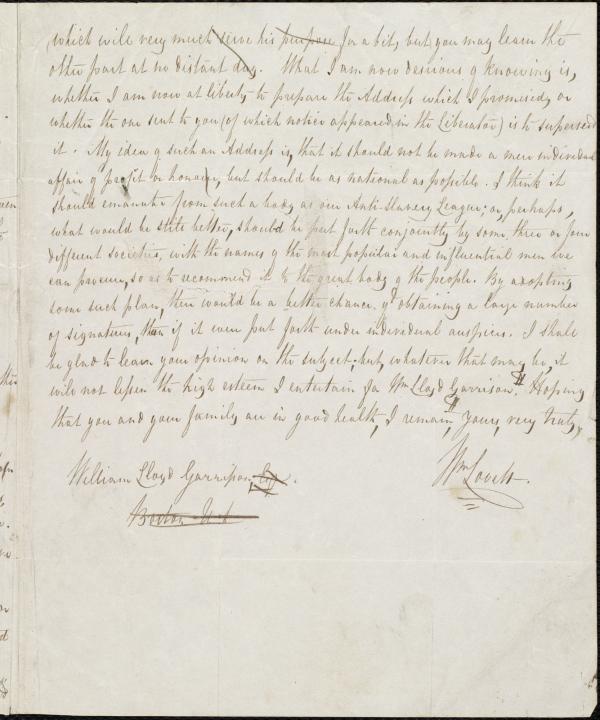 which will very much serve his purpose for a bit, but you may learn the
other part at no distant day. What I am now desirous of knowing is,
whether I am now at liberty to prepare the Address which I promised, or
whether the one sent to you (of which notice appeared in the Liberator) is to supersede
it. My idea of such an Address is, that it should not be made a mere individual
affair of profit or honour, but should be as national as possible. I think it
should emanate from such a body as our Anti-Slavery League; or, perhaps,
what would be still better, should be put forth conjointly by some three or four
different societies, with the names of the most popular and influential men we
can procure, so as to recommend it to the great body of the people. By adopting
some such plan, there would be a better chance of obtaining a large number
of signatures, than if it were put forth under individual auspices. I shall
be glad to learn your opinion on the subject; but, whatever that may be, it
will not lessen the high esteem I entertain for Wm Lloyd Garrison. Hoping
that you and your family are in good health, I remain, yours, very truly,
Wm Lovett.
William Lloyd Garrison Esq.
Boston U.S